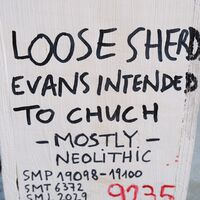 LOOSE SHERD
EVANS INTENDED
TO CHUCH
- MOSTLY -
NEOLITHIC
SMP 19098-19100
SMT 6372
SMJ 2029
9235